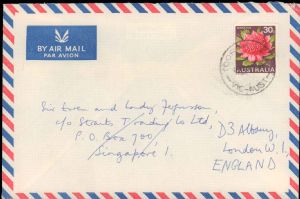 BY AIR MAIL
PAR AVION
30c
AUSTRALIA
VIC-AUST
Sir Ewen and Lady Fergusson,
c/o Straits Trading Co Ltd,
P.O Box 700,
Singapore 1.
D3 Albany,
London W.1,
ENGLAND